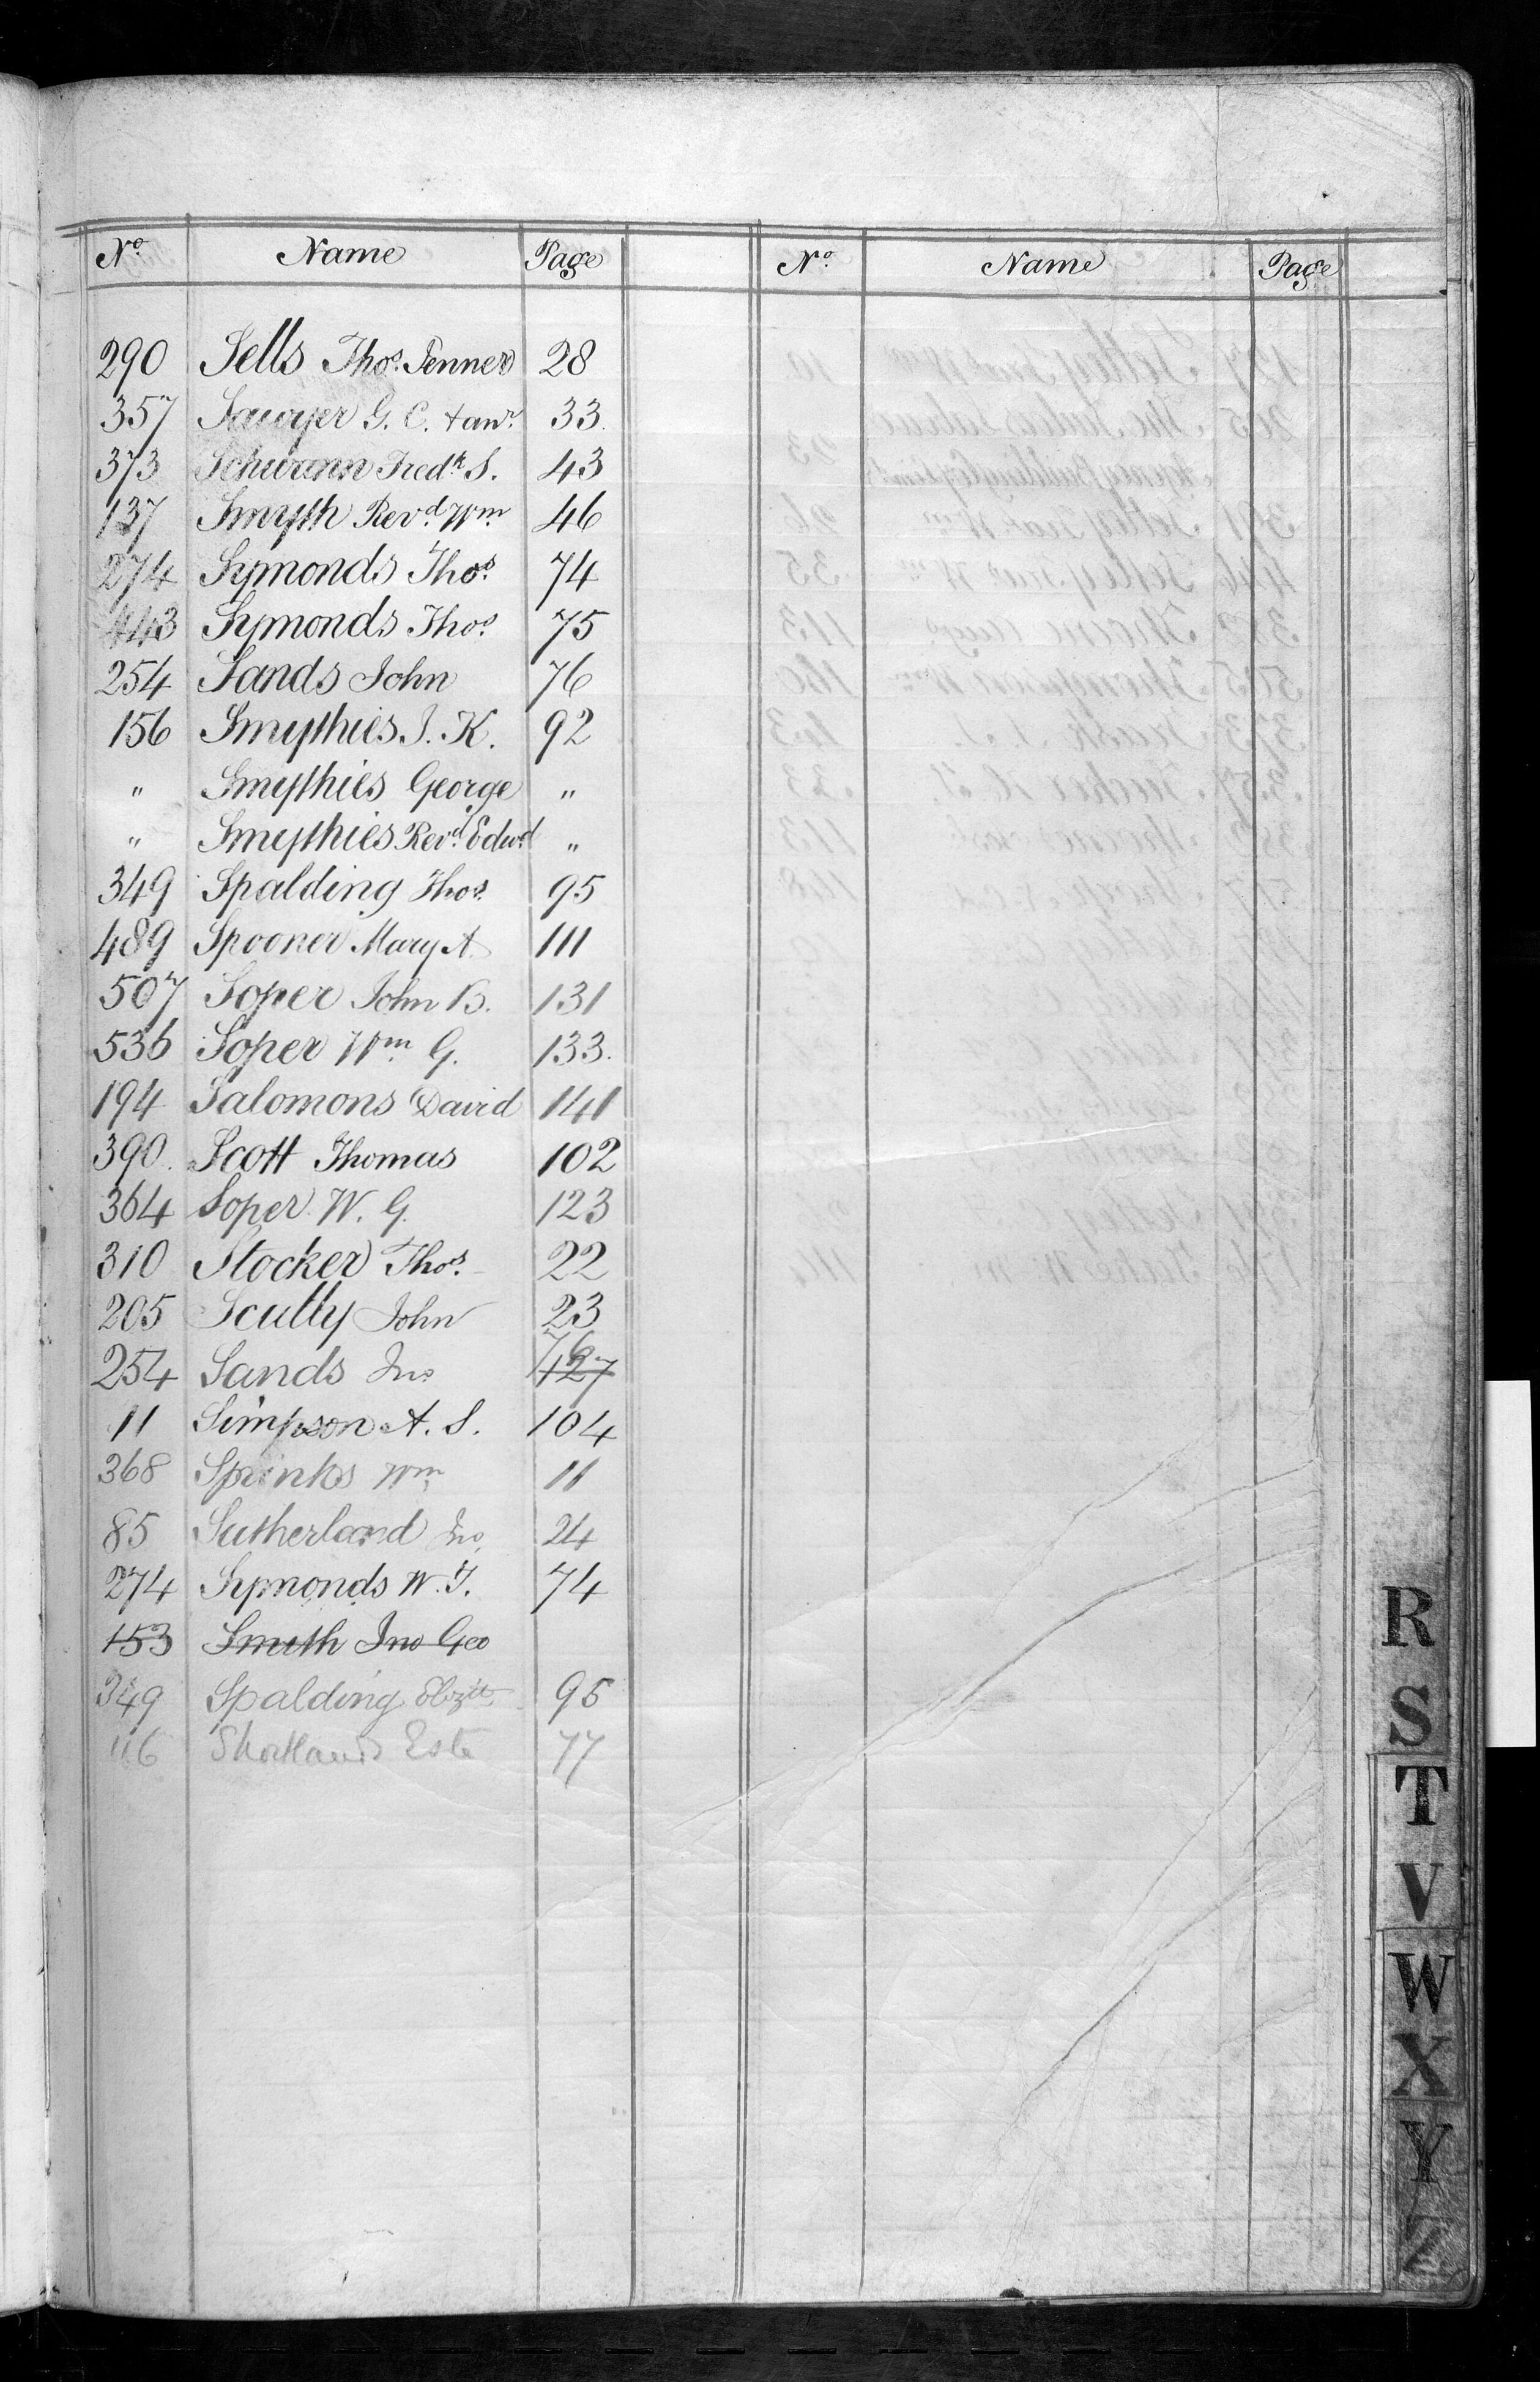 No. Name Page No. Name Page
290 Sells Thos. Jenner 28
357 Sawyer G. C. & anr. 33.
373 Schwann Fredk S. 43
137 Smyth Revd. Wm. 46
274 Symonds Thos. 74
443 Symonds Thos. 75
254 Sands John 76
156 Smythies J. K. 92
" Smythies George "
" Smythies Revd. Edwd "
349 Spalding Thos. 95
489 Spooner Mary A. 111
507 Soper John B. 131
536 Soper Wm. G. 133.
194 Salomons David 141
390. Scott Thomas 102
364 Soper W. G. 123
310 Stocker Thos. 22
205 Scully John 23
254 Sands Jno 76 127
11 Simpson A. S. 104
368 Sprinks Wm. 11
85 Sutherland Jno. 24
274 Symonds W. T. 74
153 Smith Jno Geo
349 Spalding 95
Shortland 77
R
S
T
V
W
X
Y
Z